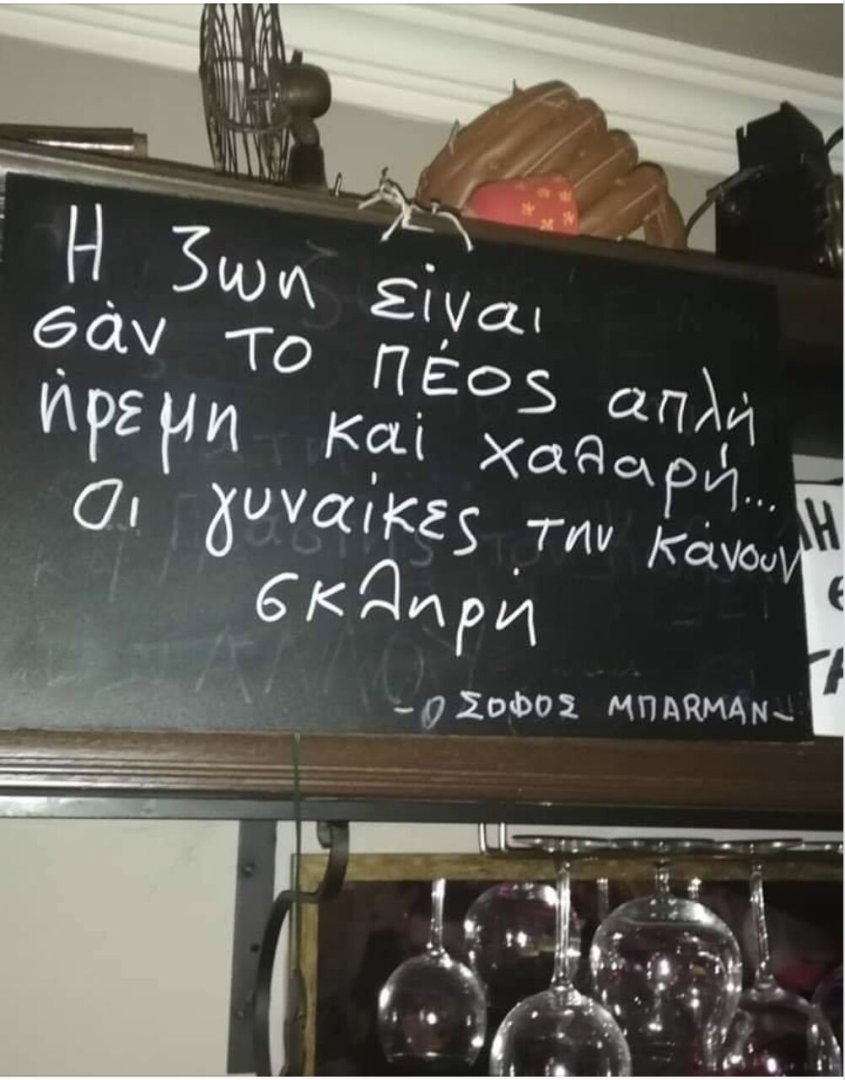 Η ζωη είναι
σὰν το πέος απλή
ἠρεμη και χαλαρή...
Οι γυναίκες την κάνουν
σκληρή
- Ο ΣΟΦΟΣ ΜΠΑRΜΑΝ -